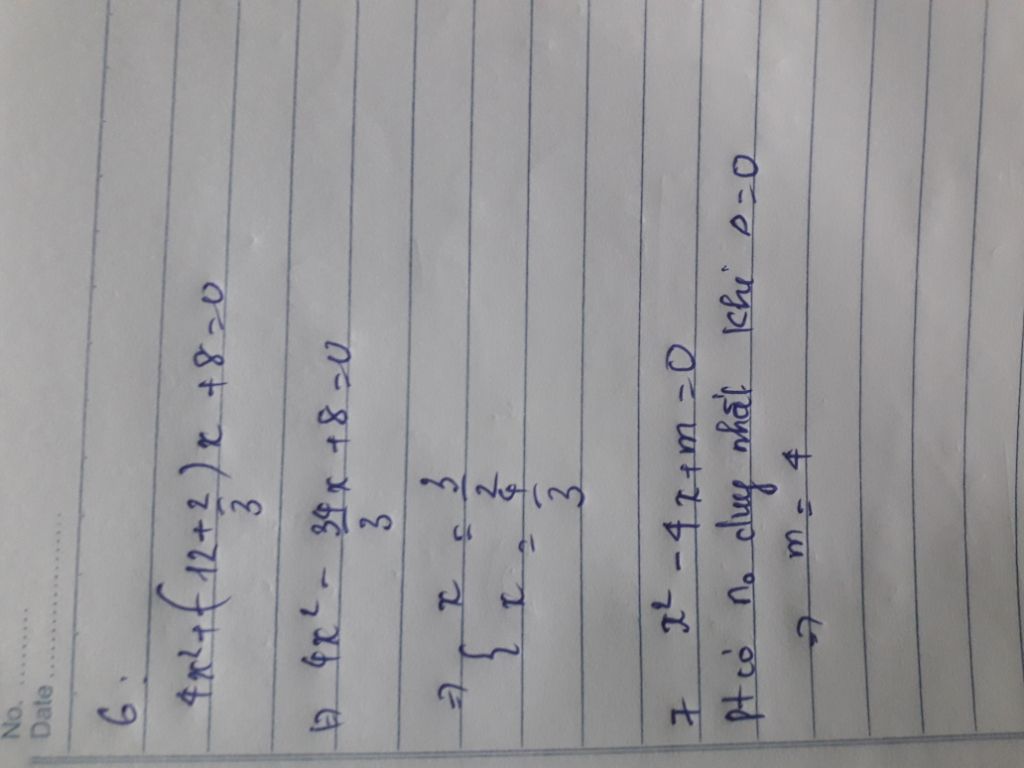 No. ..........
Date ......................
6.
4x² + (-12 + 2/3) x + 8 = 0
⇔ 4x² - 34/3 x + 8 = 0
⇒ { x = 3/2
x = 4/3
7 x² - 4x + m = 0
pt có n₀ duy nhất khi Δ = 0
⇒ m = 4